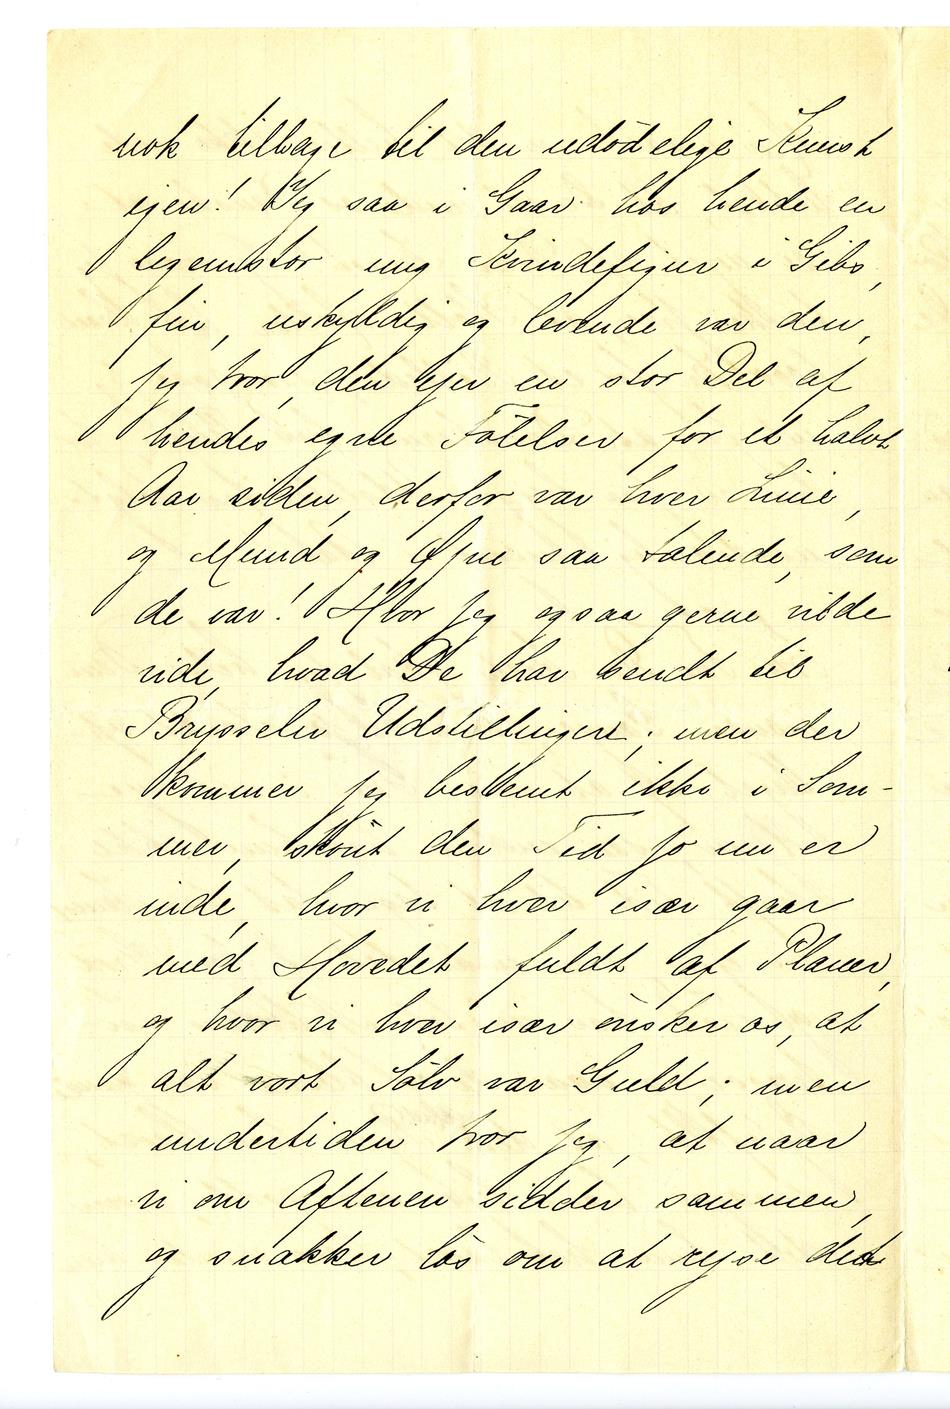 nok tilbage til den udødelige Kunst
igen! Jeg saa i Gaar hos hende en
legemstor ung Kvindefigur i Gibs,
fin, uskyldig og levende var den,
jeg tror, den ejer en stor Del af
hendes egne Følelser for et halvt
Aar siden, derfor var hver Linie,
og Mund og Øjne saa talende, som
de var! Hvor jeg ogsaa gerne vilde
vide, hvad De har sendt til
Brysseler Udstillingen; men der
kommer jeg bestemt ikke i Som-
mer, skönt den Tid jo nu er
inde, hvor vi hver især gaar
med Hovedet fuldt af Planer,
og hvor vi hver især ønsker os, at
alt vort Sölv var Guld; men
undertiden tror jeg, at naar
vi om Aftenen sidder sammen,
og snakker løs om at rejse det